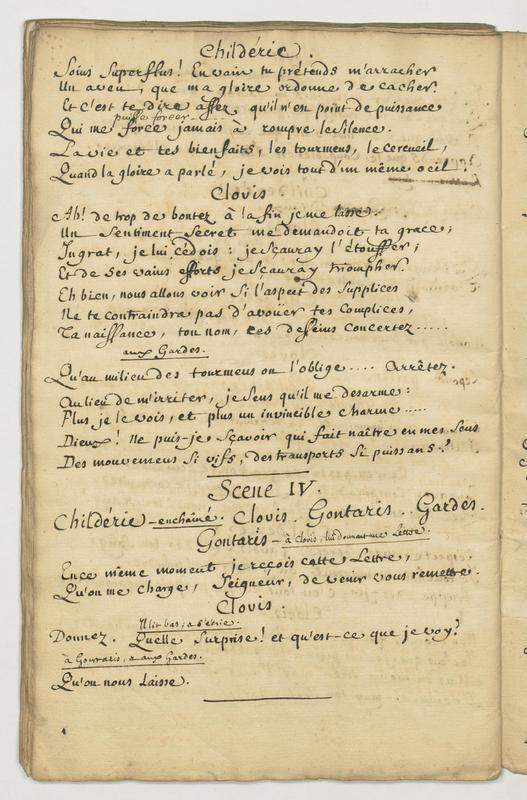 Childéric.
Soins Superflus! En vain tu prétends m'arracher
Un aveu, que ma gloire ordonne de cacher.
Et c'est te dire assez, qu'il n'est point de puissance
puisse forcer
Qui me force jamais à rompre le silence.
La vie et tes bienfaits, les tourmens, le cercueil,
Quand la gloire a parlé, je vois tout d'un même oeil.
Clovis.
Ah! de trop de bontez à la fin je me lasse.
Un Sentiment Secret me demandoit ta grace;
Ingrat, je lui cédois: je Sçauray l'étouffer;
Et de Ses vains efforts je Sçauray triompher.
Eh bien, nous allons voir Si l'aspect des Supplices
Ne te contraindra pas d'avoüer tes Complices,
Ta naissance, ton nom, tes desseins concertez.....
aux Gardes.
Qu'au milieu des tourmens on l'oblige.... Arrêtez.
Au lieu de m'irriter, je Sens qu'il me desarme:
Plus je le vois, et plus un invincible charme.....
Dieux! Ne puis-je Sçavoir qui fait naître en mes Sens
Des mouvemens Si vifs, des transports Si puissans?
Scene IV.
Childéric enchainé. Clovis. Gontaris. Gardes.
Gontaris à Clovis, lui donnant une Lettre.
En ce même moment, je reçois cette Lettre,
Qu'on me charge, Seigneur, de venir vous remettre.
Clovis.
Il lit bas, & s'écrie.
Donnez. Quelle Surprise! et qu'est-ce que je voy?
à Gontaris, & aux Gardes.
Qu'on nous Laisse.